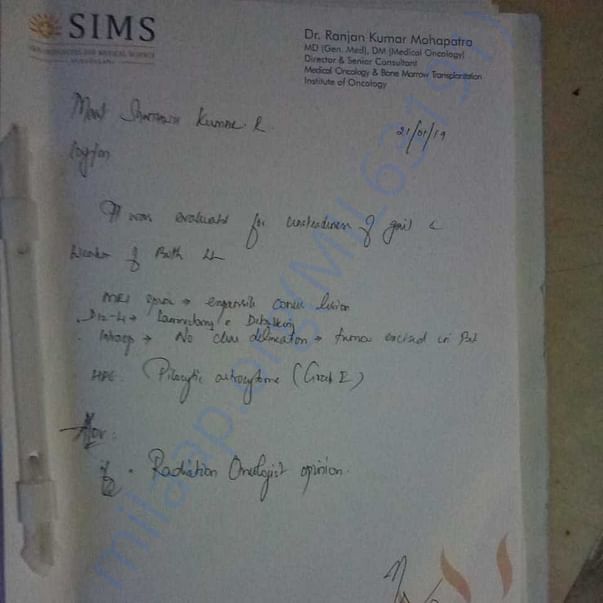 SIMS
Dr. Ranjan Kumar Mohapatra
MD (Gen. Med), DM (Medical Oncology)
Director & Senior Consultant
Medical Oncology & Bone Marrow Transplantation
Institute of Oncology
Kumar R.
21/01/19
was evaluated for unsteadiness of gait c
of Both LL
MRI spine → expansile conus lesion
D12-L1 → Laminectomy & Debulking
Intraop → No clear delineation → tumor excised in
HPE: Pilocytic astrocytoma (Grade I)
Adv:
Radiation Oncologist opinion.
milaap.org(MIL63197)